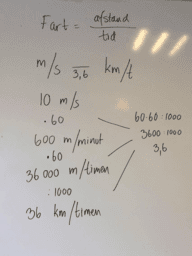 Fart = afstand / tid
m/s 3,6 km/t
10 m/s
· 60
600 m/minut
· 60
36 000 m/timen
: 1000
36 km/timen
60·60 : 1000
3600 : 1000
3,6